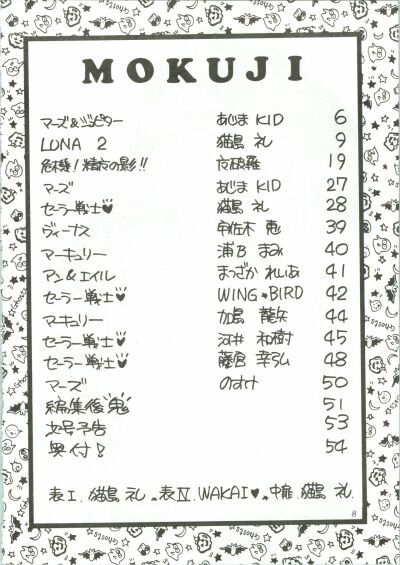 MOKUJI
マーズ&ジュピター あじま KID 6
LUNA 2 猫島 礼 9
危機!精夜の影!! 夜破羅 19
マーズ あじま KID 27
セーラー戦士♥ 猫島 礼 28
ヴィーナス 宇佐木 恵 39
マーキュリー 浦B まみ 40
アン&エイル まつざか れいあ 41
セーラー戦士♥ WING★BIRD 42
マーキュリー 加島 龍矢 44
セーラー戦士♥ 河井 和樹 45
セーラー戦士♥ 藤倉 幸弘 48
マーズ のすけ 50
編集後鬼 51
次号予告 53
奥付! 54
表I. 猫島 礼. 表IV. WAKAI♥. 中扉 猫島 礼.
8
Ghosts